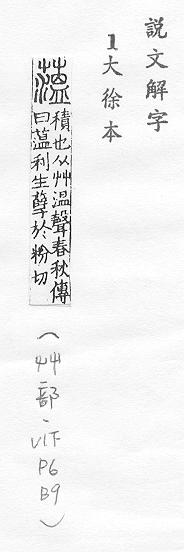 説文解字
1大徐本
薀
積也从艸温聲春秋傳
曰薀利生孽於粉切
(艸部、
V1下
P6
B9)